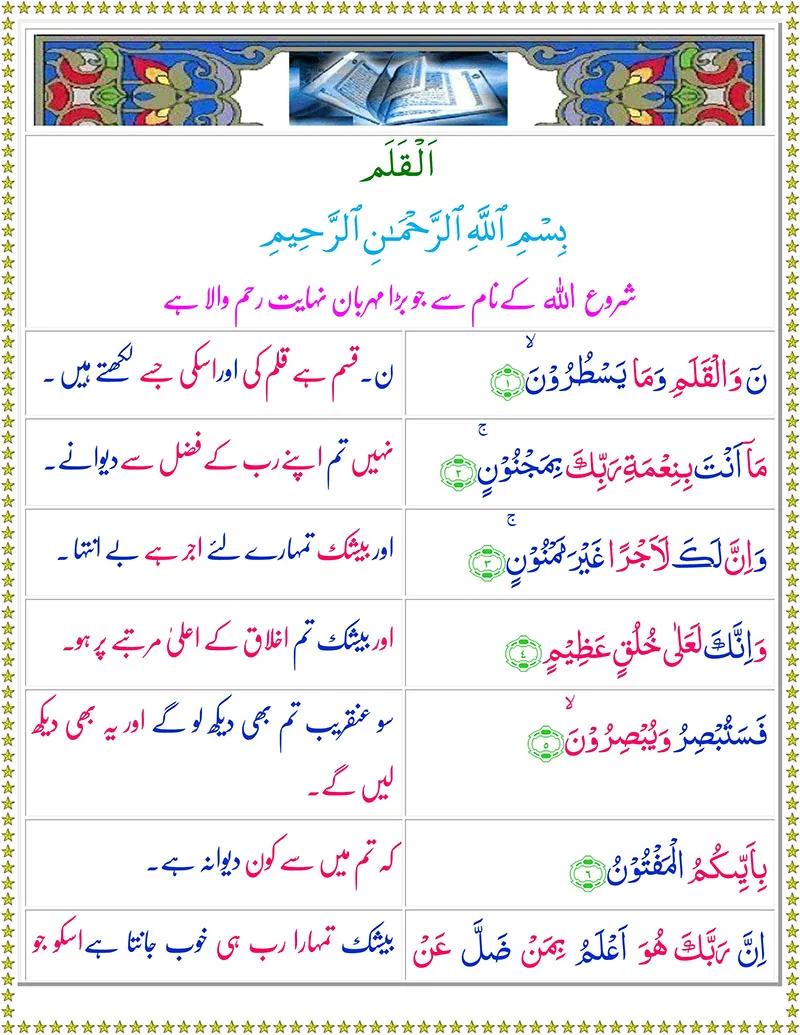 اَلْقَلَم
بِسْمِ ٱللَّهِ ٱلرَّحْمَـٰنِ ٱلرَّحِيمِ
شروع اللہ کےنام سے جو بڑا مہربان نہایت رحم والا ہے
نٓ وَالْقَلَمِ وَمَا يَسْطُرُوْنَۙ ﴿۱﴾
ن۔قسم ہے قلم کی اور اسکی جسے لکھتے ہیں ۔
مَاۤ اَنْتَ بِنِعْمَةِ رَبِّكَ بِمَجْنُوْنٍۚ ﴿۲﴾
نہیں تم اپنے رب کے فضل سے دیوانے۔
وَاِنَّ لَكَ لَاَجْرًا غَيْرَ مَمْنُوْنٍۚ ﴿۳﴾
اور بیشک تمہارے لئے اجر ہے بے انتہا ۔
وَاِنَّكَ لَعَلٰى خُلُقٍ عَظِيْمٍ ﴿٤﴾
اور بیشک تم اخلاق کے اعلیٰ مرتبے پر ہو۔
فَسَتُبْصِرُ وَيُبْصِرُوْنَۙ ﴿۵﴾
سو عنقریب تم بھی دیکھ لو گے اور یہ بھی دیکھ
لیں گے۔
بِاَيِّٮكُمُ الْمَفْتُوْنُ ﴿٦﴾
کہ تم میں سے کون دیوانہ ہے۔
اِنَّ رَبَّكَ هُوَ اَعْلَمُ بِمَنْ ضَلَّ عَنْ
بیشک تمہارا رب ہی خوب جانتا ہے اسکو جو